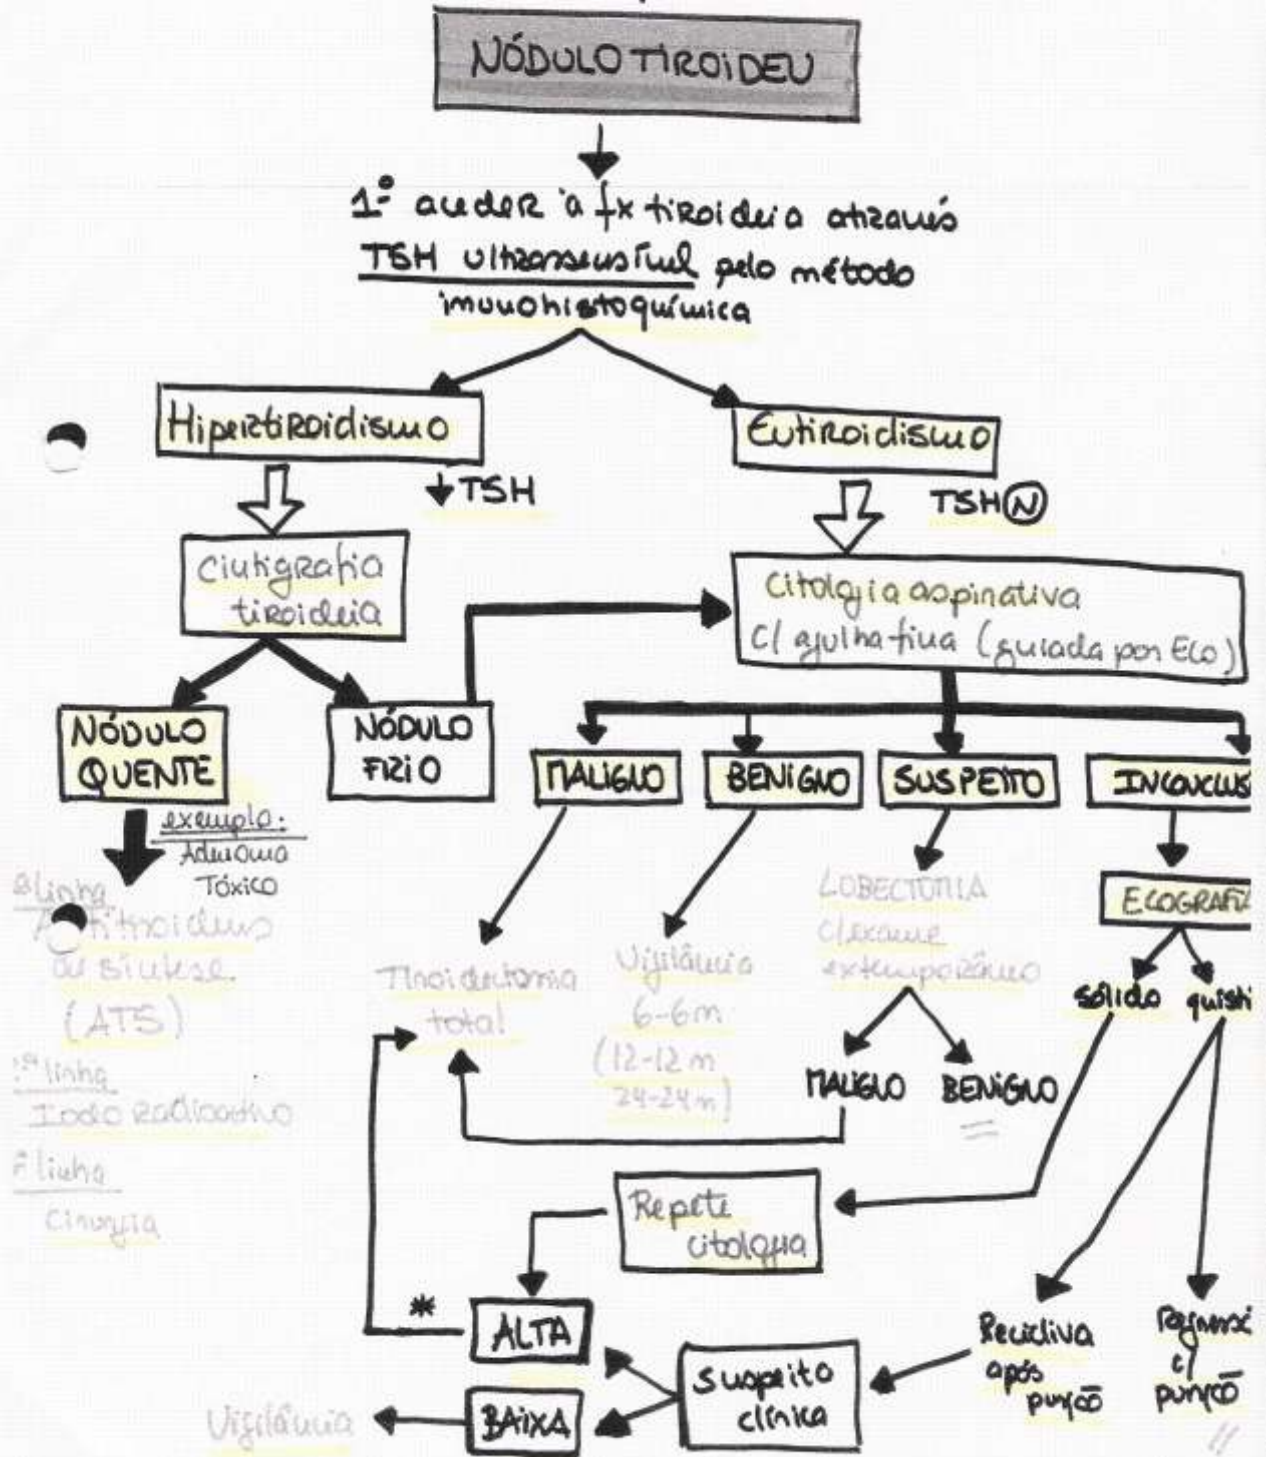 NÓDULO TIROIDEU
1º aceder à fx tiroideia através
TSH ultrassensível pelo método
imunohistoquímica
Hipertiroidismo
↓TSH
Eutiroidismo
TSH N
Cintigrafia
tiroideia
Citologia aspirativa
c/ agulha fina (guiada por Eco)
NÓDULO
QUENTE
NÓDULO
FRIO
MALIGNO
BENIGNO
SUSPEITO
INCONCLUS
exemplo:
Adenoma
Tóxico
ª linha
Antitiroideus
de síntese
(ATS)
ª linha
Iodo Radioativo
ª linha
Cirurgia
Tiroidectomia
total
Vigilância
6-6m
(12-12m
24-24m)
LOBECTOMIA
c/exame
extemporâneo
MALIGNO
BENIGNO
ECOGRAFI
sólido
quísti
Repete
citologia
*
ALTA
BAIXA
Vigilância
Suspeito
clínica
Recidiva
após
punção
c/
punção